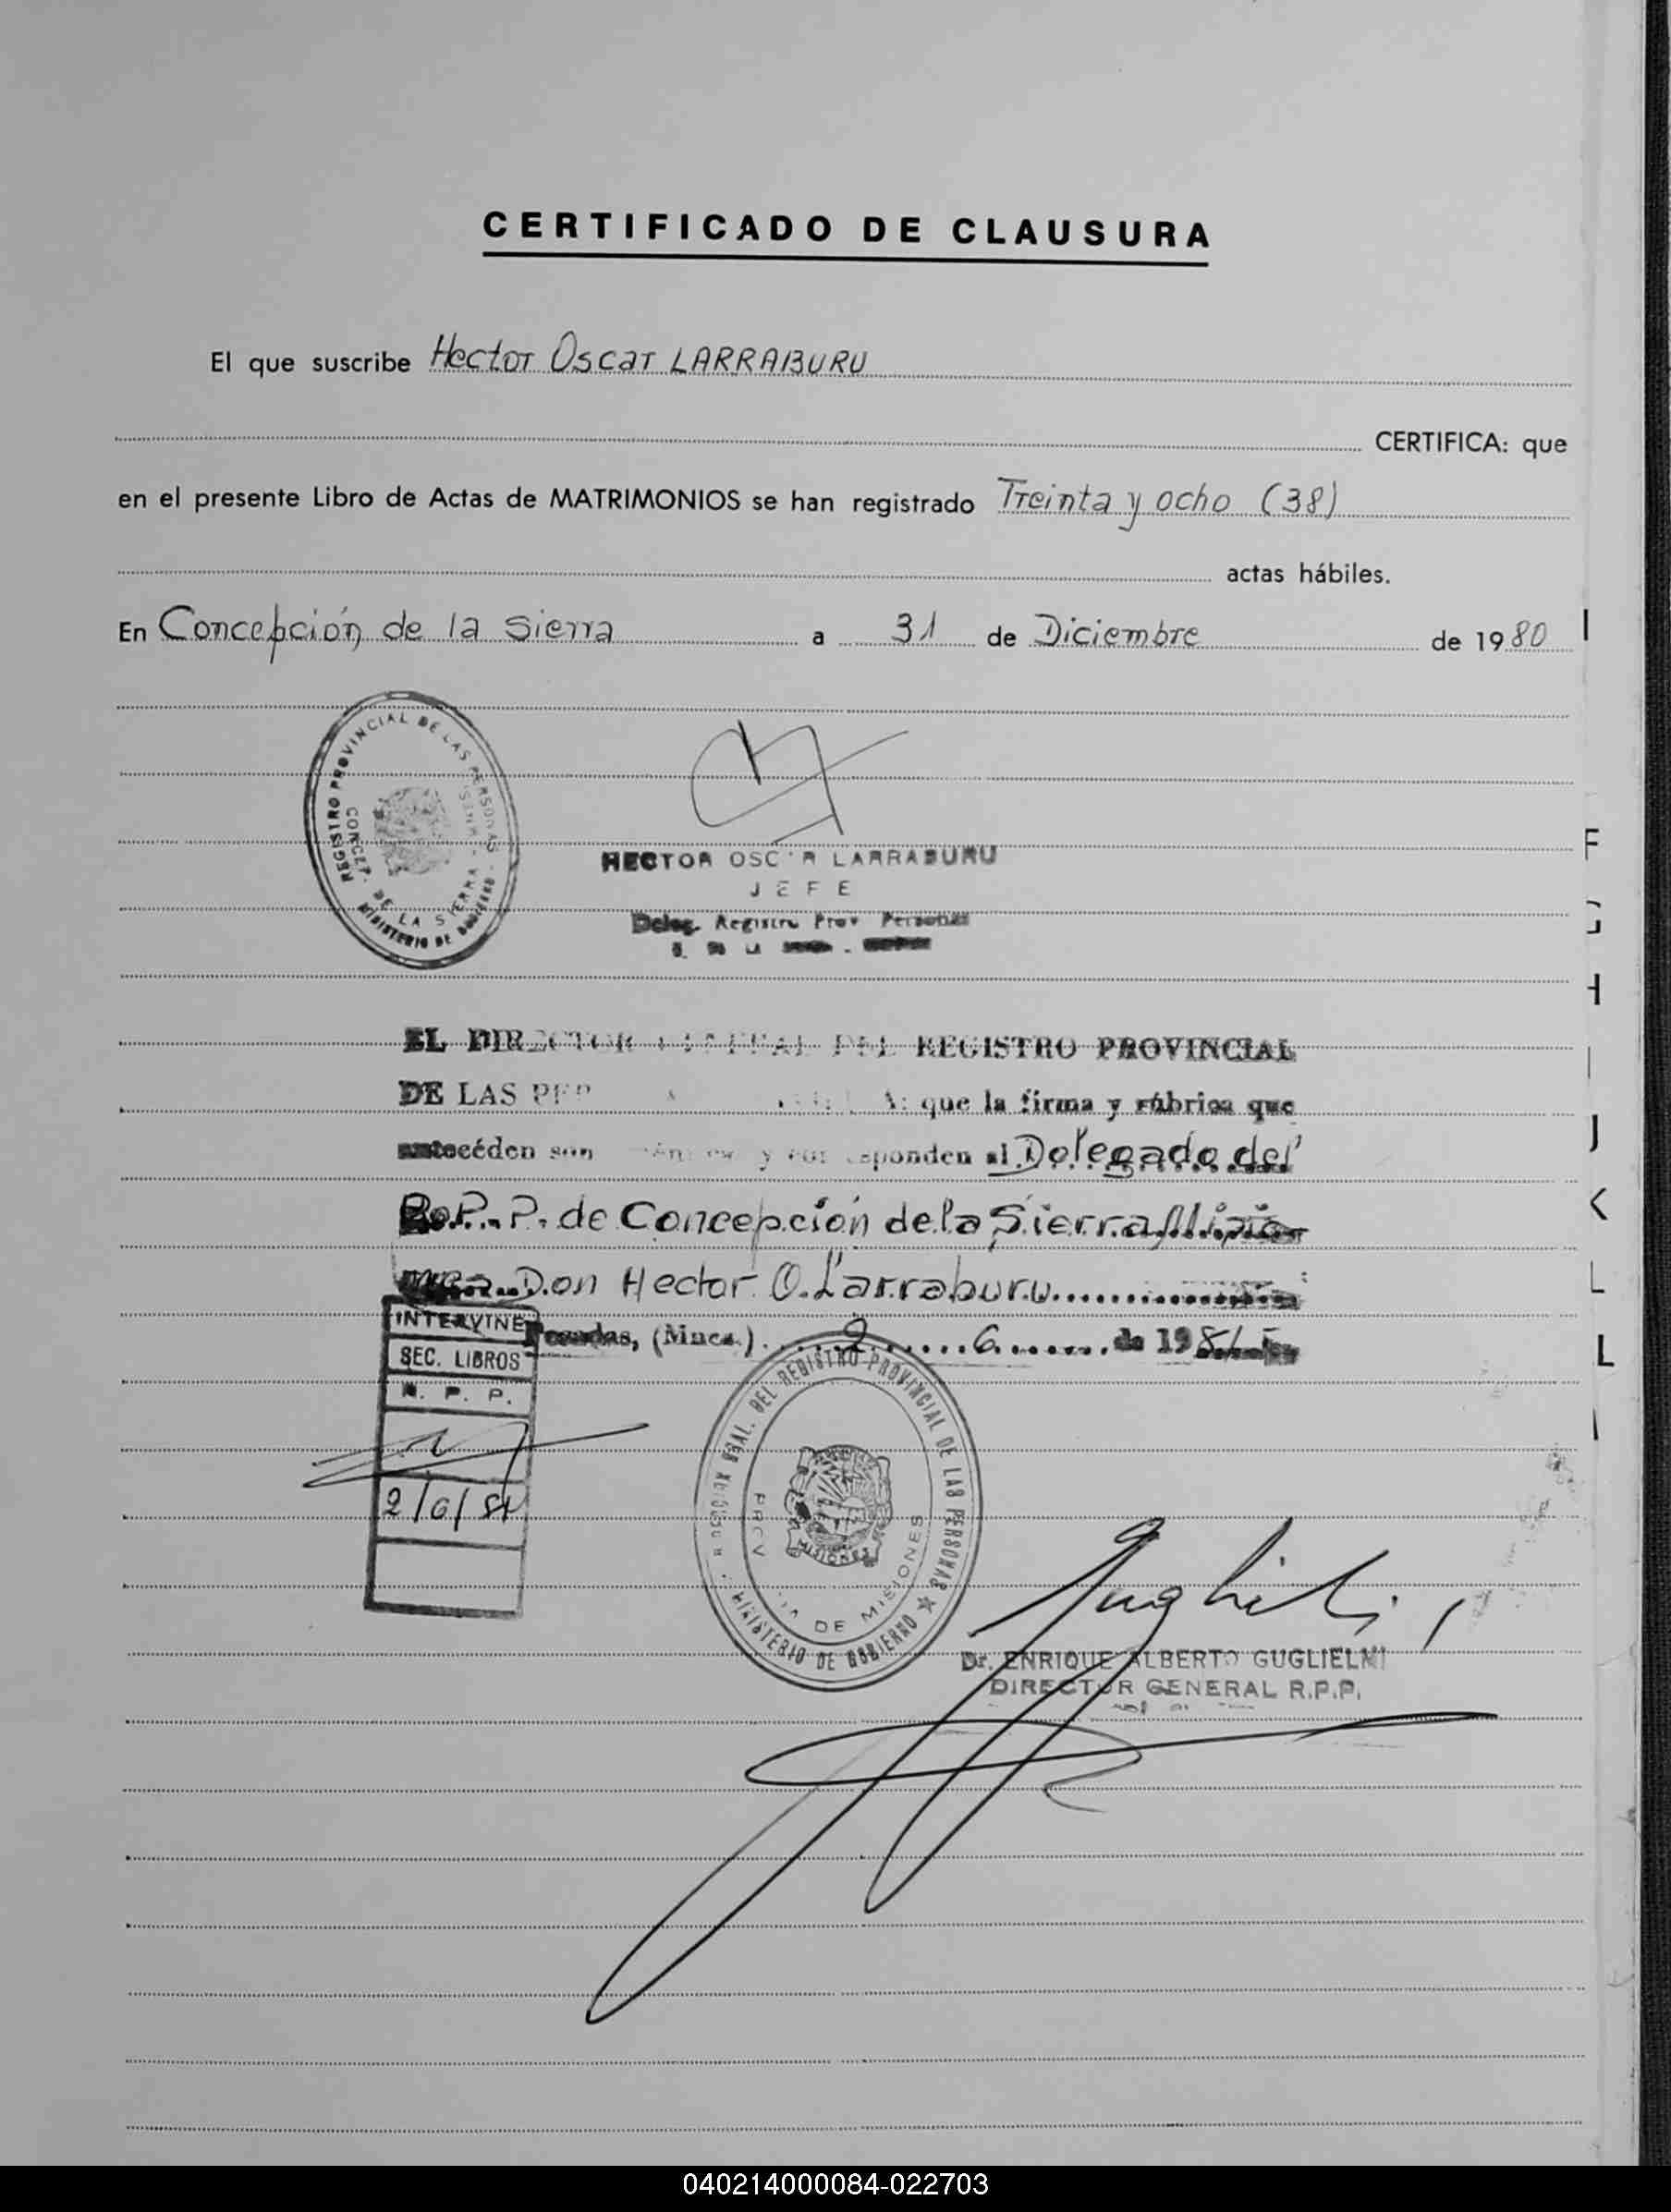 CERTIFICADO DE CLAUSURA
El que suscribe Hector Oscar LARRABURU
CERTIFICA: que
en el presente Libro de Actas de MATRIMONIOS se han registrado Treinta y ocho (38)
actas hábiles.
En Concepción de la Sierra a 31 de Diciembre de 1980
REGISTRO PROVINCIAL DE LAS PERSONAS
CONCEP. DE LA SIERRA
MINISTERIO DE GOBIERNO
HECTOR OSC R LARRABURU
JEFE
Deleg. Registro Prov Personas
EL DIRECTOR DEL REGISTRO PROVINCIAL
DE LAS que la firma y rúbrica que
anteceden son y al Delegado del
R.P.P. de Concepción de la Sierra Misio
nes Don Hector O. Larraburu
Posadas, (Mnes.) 2 6 de 1981
INTERVINE
SEC. LIBROS
R. P. P.
2/6/81
DIRECCION GRAL. DEL REGISTRO PROVINCIAL DE LAS PERSONAS
MINISTERIO DE GOBIERNO
PROV DE MISIONES
MISIONES
Dr. ENRIQUE ALBERTO GUGLIELMI
DIRECTOR GENERAL R.P.P.
F
G
H
I
J
K
L
L
040214000084-022703